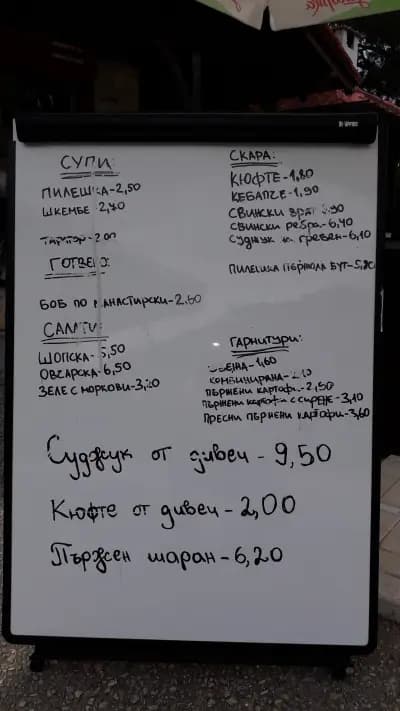 СУПИ:
ПИЛЕШКА-2,50
ШКЕМБЕ 2,70
ТАРАТОР-2,00
ГОТВЕНО:
БОБ ПО МАНАСТИРСКИ-2,60
САЛАТИ:
ШОПСКА-5,50
ОВЧАРСКА-6,50
ЗЕЛЕ С МОРКОВИ-3,20
СКАРА:
КЮФТЕ-1,80
КЕБАПЧЕ-1,90
СВИНСКИ ВРАТ
СВИНСКИ РЕБРА-6,40
СУДЖУК НА ГРЕБЕН-6,10
ПИЛЕШКА ПЪРЖОЛА БУТ-5,80
ГАРНИТУРИ:
-1,60
КОМБИНИРАНА-
ПЪРЖЕНИ КАРТОФИ-2,50
ПЪРЖЕНИ КАРТОФИ С СИРЕНЕ-3,10
ПРЕСНИ ПЪРЖЕНИ КАРТОФИ-3,60
Суджук от дивеч-9,50
Кюфте от дивеч-2,00
Пържен шаран-6,20